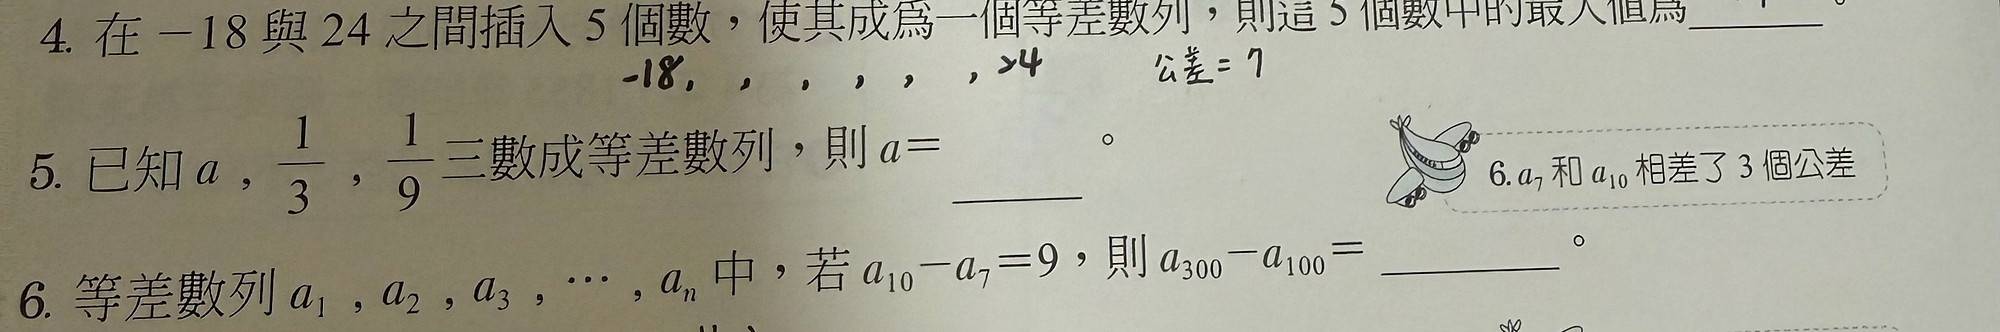 4. 在 −18 與 24 之間插入 5 個數，使其成為一個等差數列，則這 5 個數中的最大值為______。
-18, , , , , , 24 公差=7
5. 已知 a , 1/3 , 1/9 三數成等差數列，則 a=______。
6. a₇ 和 a₁₀ 相差了 3 個公差
6. 等差數列 a₁ , a₂ , a₃ , … , aₙ 中，若 a₁₀−a₇=9，則 a₃₀₀−a₁₀₀=______。